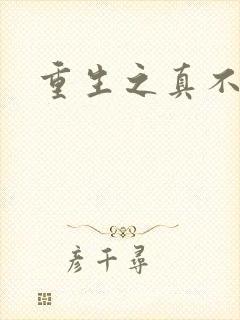 重生之真不
彦千寻